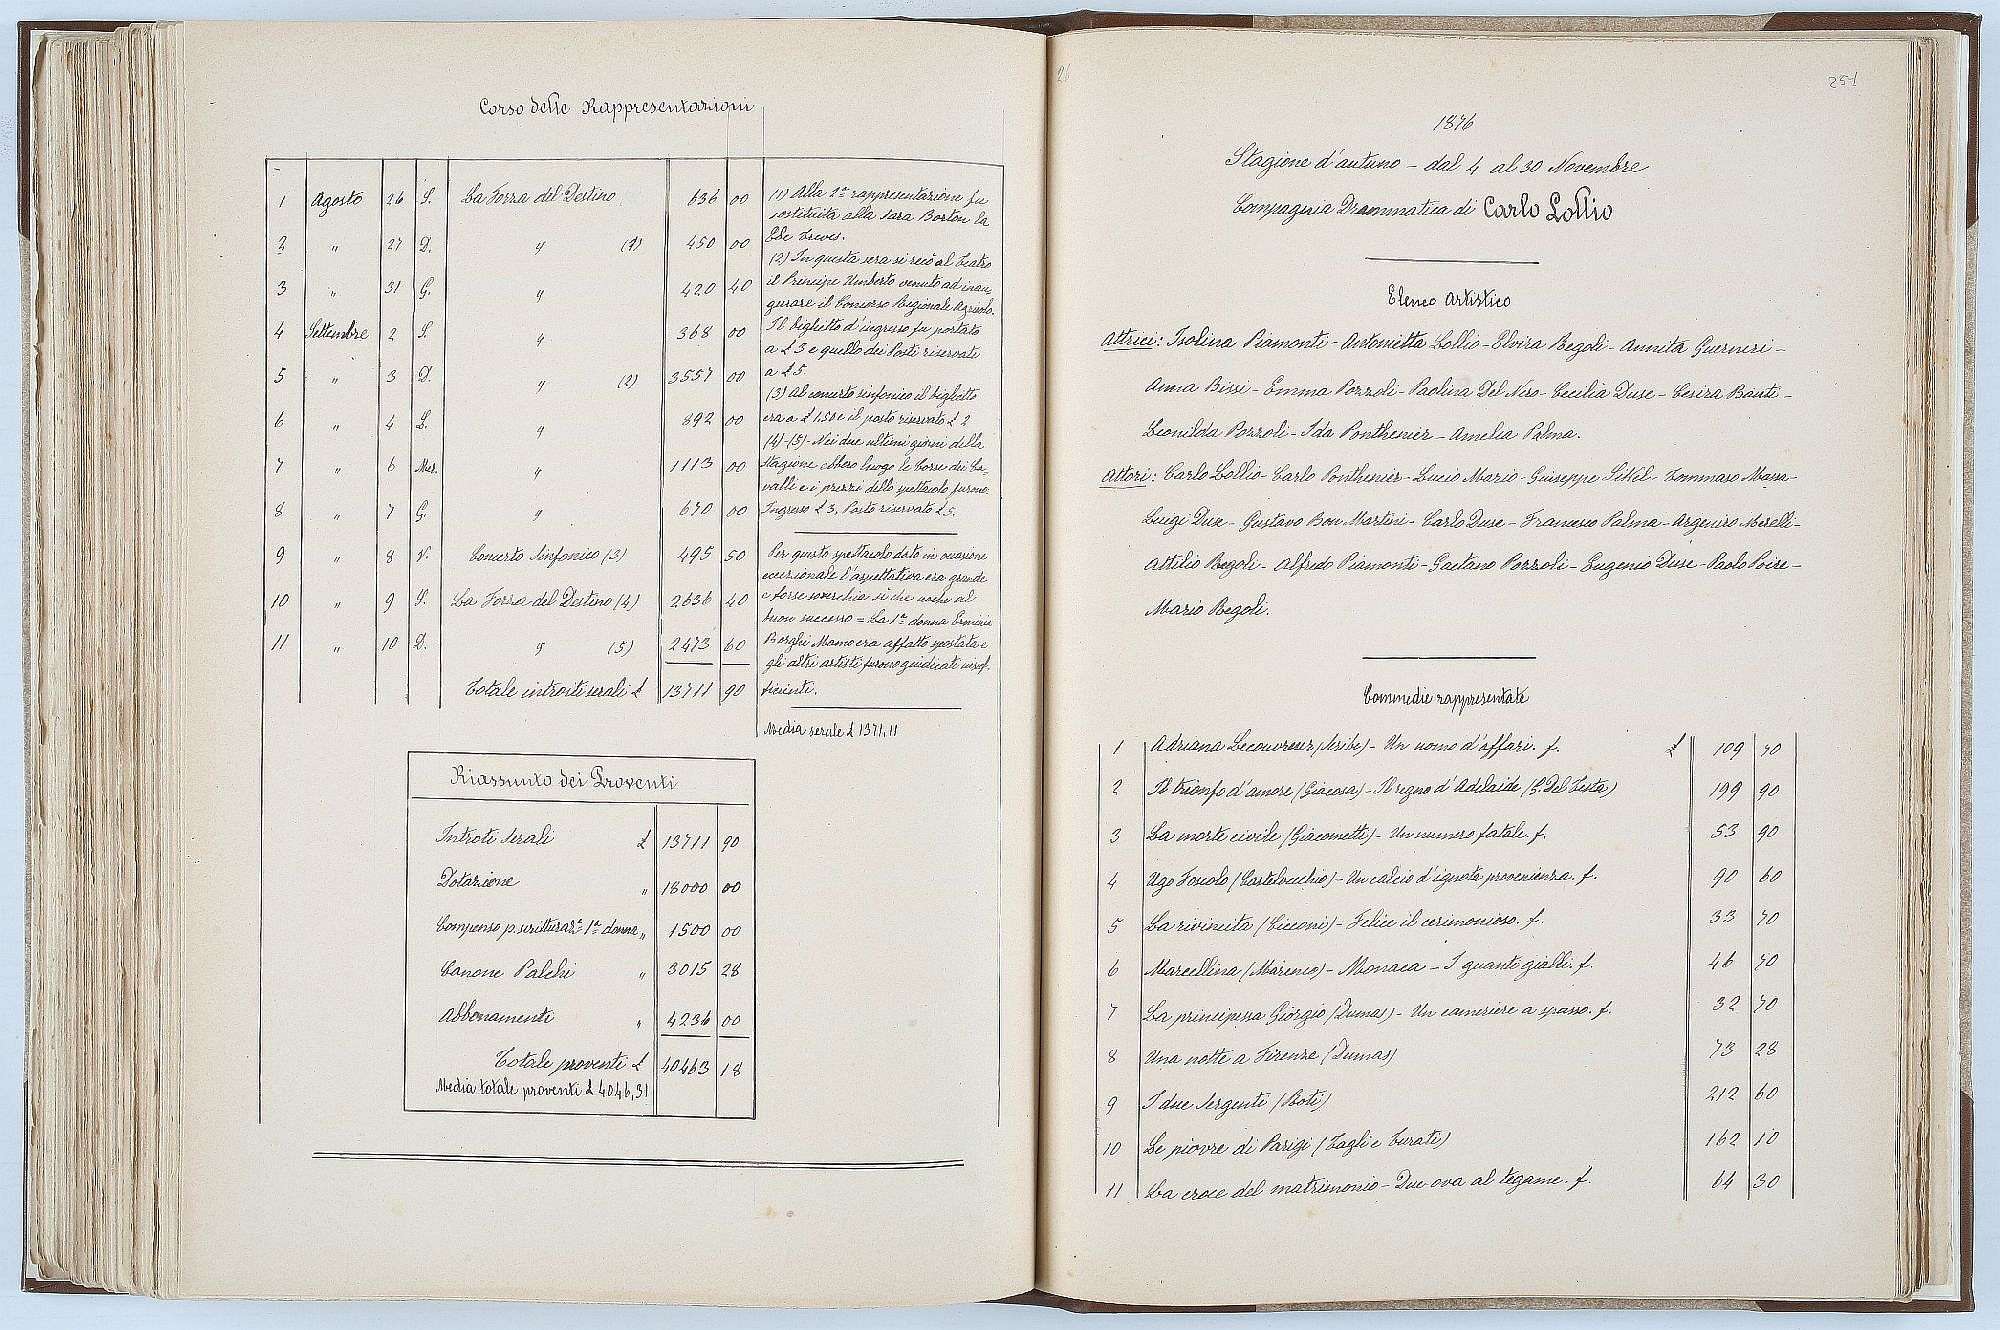 Corso delle Rappresentazioni
1 Agosto 26 S. La Forza del Destino 636 00
2 " 27 D. " (1) 450 00
3 " 31 G. " 420 40
4 Settembre 2 S. " 368 00
5 " 3 D. " (2) 3557 00
6 " 4 L. " 892 00
7 " 6 Mer. " 1113 00
8 " 7 G. " 670 00
9 " 8 V. Concerto Sinfonico (3) 495 50
10 " 9 S. La Forza del Destino (4) 2636 40
11 " 10 D. " (5) 2473 60
Totale introiti serali £ 13711 90
(1) Alla 1a rappresentazione fu
sostituita alla Sara Borton la
Ebe Treves.
(2) In questa sera si recò al Teatro
il Principe Umberto venuto ad inau-
gurare il Concorso Regionale Agricolo.
Il biglietto d'ingresso fu portato
a £ 3 e quello dei Posti riservati
a £ 5
(3) Al concerto sinfonico il biglietto
era a £ 1.50 e il posto riservato £ 2
(4)-(5)- Nei due ultimi giorni della
Stagione ebbero luogo le Corse dei Ca-
valli e i prezzi dello spettacolo furono:
Ingresso £ 3, Posto riservato £ 5.
Per questo spettacolo dato in occasione
eccezionale l'aspettativa era grande
e forse soverchia sì che nocke al
buon successo = La 1a donna Erminia
Borghi Mamo era affatto spostata e
gli altri artisti furono giudicati insuf-
ficienti.
Media serale £ 1371,11
Riassunto dei Proventi
Introti Serali £ 13711 90
Dotazione " 18000 00
Compenso p. scrittura 1a donna " 1500 00
Canone Palchi " 3015 28
Abbonamenti " 4236 00
Totale proventi £ 40463 18
Media totale proventi £ 4046,31
26
251
1876
Stagione d'autuno - dal 4 al 30 Novembre
Compagnia Drammatica di Carlo Lollio
Elenco Artistico
Attrici: Isolina Piamonti - Antonietta Lollio - Elvira Regoli - Annita Guernieri -
Anna Bissi - Emma Pozzoli - Paolina Del Nero - Cecilia Duse - Cesira Banti -
Leonilda Pozzoli - Ida Ponthenier - Amelia Palma.
Attori: Carlo Lollio - Carlo Ponthenier - Lucio Mario - Giuseppe Sikel - Tommaso Massa -
Luigi Duse - Gustavo Bon Martini - Carlo Duse - Francesco Palma - Argeniro Merelli -
Attilio Regoli - Alfredo Piamonti - Gaetano Pozzoli - Eugenio Duse - Paolo Poise -
Mario Regoli.
Commedie rappresentate
1 Adriana Lecouvreur (Scribe) - Un uomo d'affari. f. £ 109 70
2 Il trionfo d'amore (Giacosa) - Il regno d'Adelaide (G. Del Testa) 199 90
3 La morte civile (Giacometti) - Un numero fatale. f. 53 90
4 Ugo Foscolo (Castelvecchio) - Un calcio d'ignota provenienza. f. 90 60
5 La rivincita (Cicconi) - Felice il cerimonioso. f. 33 70
6 Marcellina (Marenco) - Monaca - I guanti gialli. f. 46 70
7 La principessa Giorgio (Dumas) - Un cameriere a spasso. f. 32 70
8 Una notte a Firenze (Dumas) 73 28
9 I due Sergenti (Roti) 212 60
10 Le piovre di Parigi (Tagli e Turati) 162 10
11 La croce del matrimonio - Due ova al tegame. f. 64 30